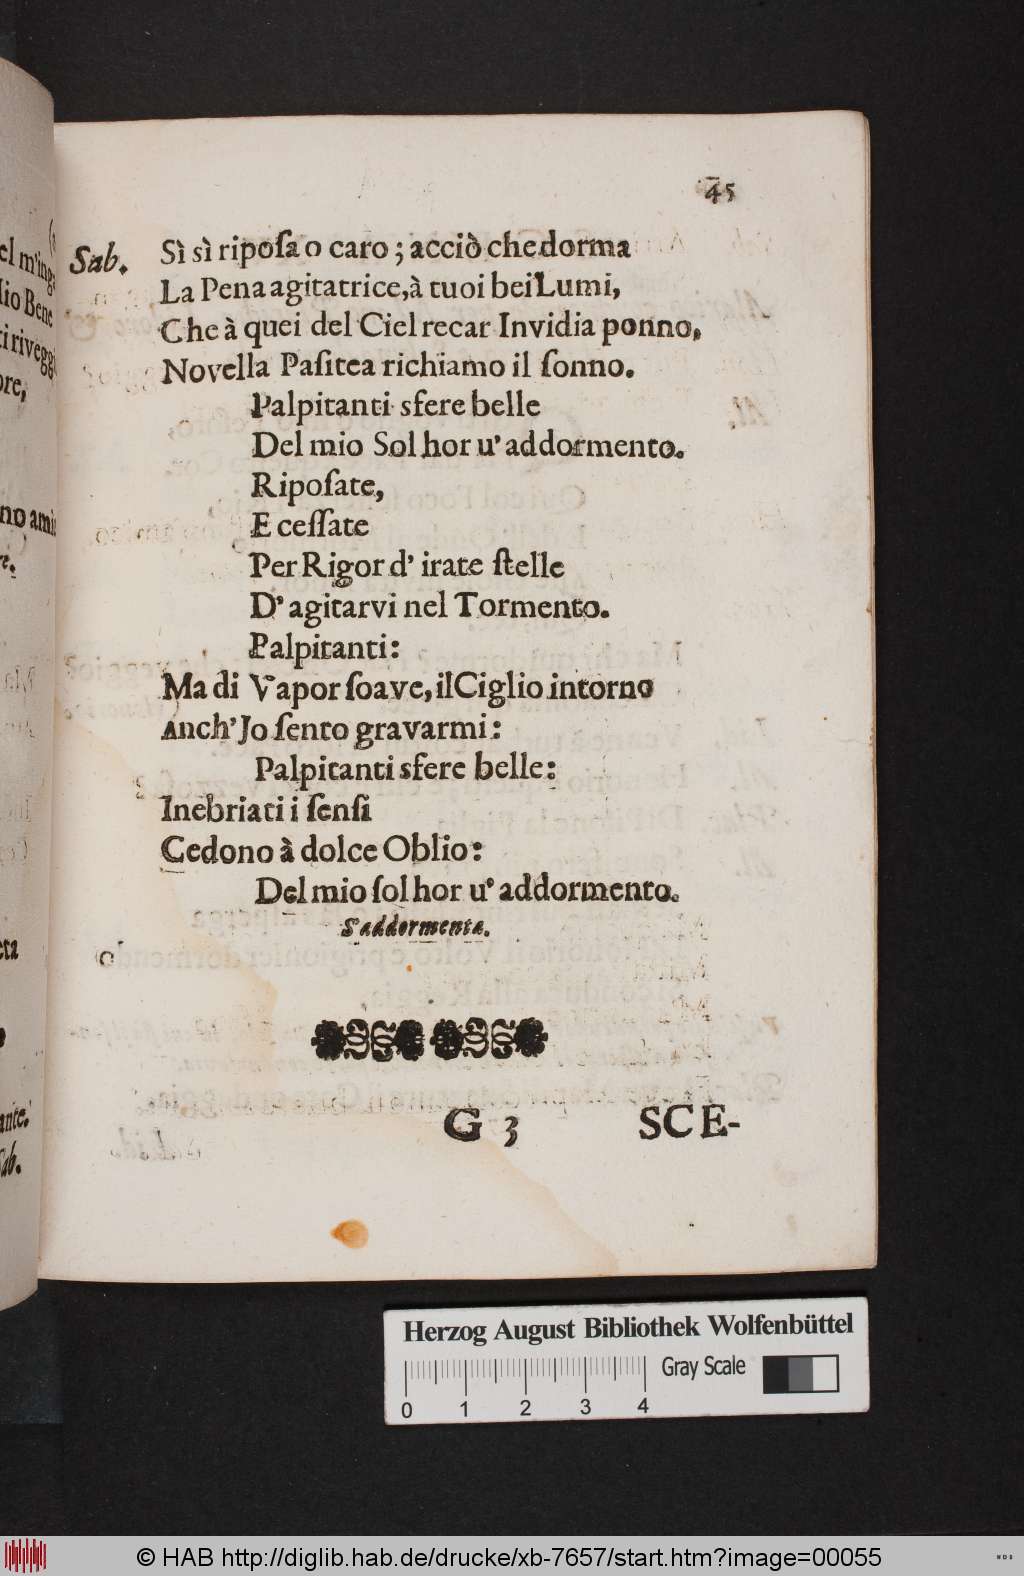 45
Sab. Sì sì riposa o caro; acciò che dorma
La Pena agitatrice, à tuoi bei Lumi,
Che à quei del Ciel recar Invidia ponno,
Novella Pasitea richiamo il sonno.
Palpitanti sfere belle
Del mio Sol hor u' addormento.
Riposate,
E cessate
Per Rigor d' irate stelle
D' agitarvi nel Tormento.
Palpitanti:
Ma di Vapor soave, il Ciglio intorno
Anch' Jo sento gravarmi:
Palpitanti sfere belle:
Inebriati i sensi
Cedono à dolce Oblio:
Del mio sol hor u' addormento.
S'addormenta.
G 3 SCE-
Herzog August Bibliothek Wolfenbüttel
Gray Scale
0 1 2 3 4
© HAB http://diglib.hab.de/drucke/xb-7657/start.htm?image=00055